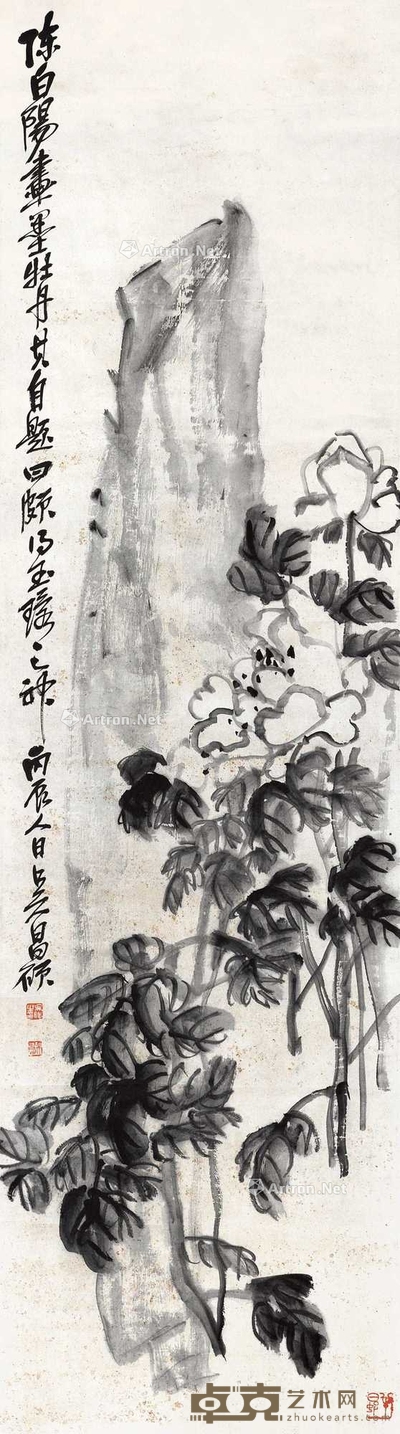 陈白陽畫墨牡丹其自题曰頗得玉環之神 丙辰人日 吴昌碩
Artron.Net
Artron.Net
Artron.Net
Artron.Net
卓克艺术网
www.zhuokearts.com